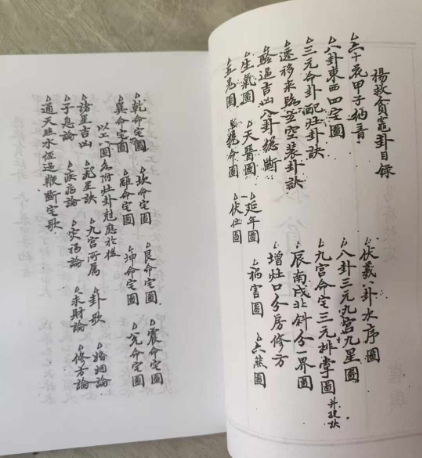 楊救貧竈卦目錄
六十花甲子納音
八卦東西四宅圖 伏羲八卦水序圖
三元命卦配灶卦訣 八卦三元九宮九星圖
遷移來路 裝卦訣 九宮命宅三元排掌圖 并起訣
吉凶八卦總斷 辰南戌北斜分一界圖
增灶口分房修方
生氣圖 天醫圖 延年圖 禍害圖 六煞圖
五鬼圖 絕命圖 伏位圖
乾命定圖 坎命定圖 艮命定圖 震命定圖
巽命定圖 離命定圖 坤命定圖 兌命定圖
以上八圖各附灶卦剋應於後
諸星吉凶 九宮所屬 卦歌 婚姻論
子息論 疾病論 災禍論 求財論 修方論
通天照水經 斷宅歌